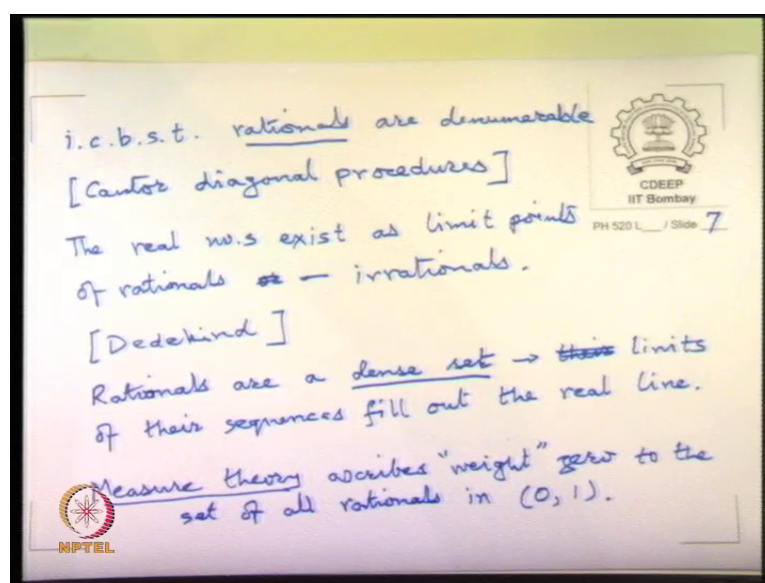 i.c.b.s.t. rationals are denumerable
[Cantor diagonal procedures]
CDEEP
IIT Bombay
PH 520 L___ / Slide 7
The real no.s exist as limit points
of rationals — irrationals.
[Dedekind]
Rationals are a dense set → limits
of their sequences fill out the real line.
Measure theory ascribes "weight" zero to the
set of all rationals in (0, 1).
NPTEL